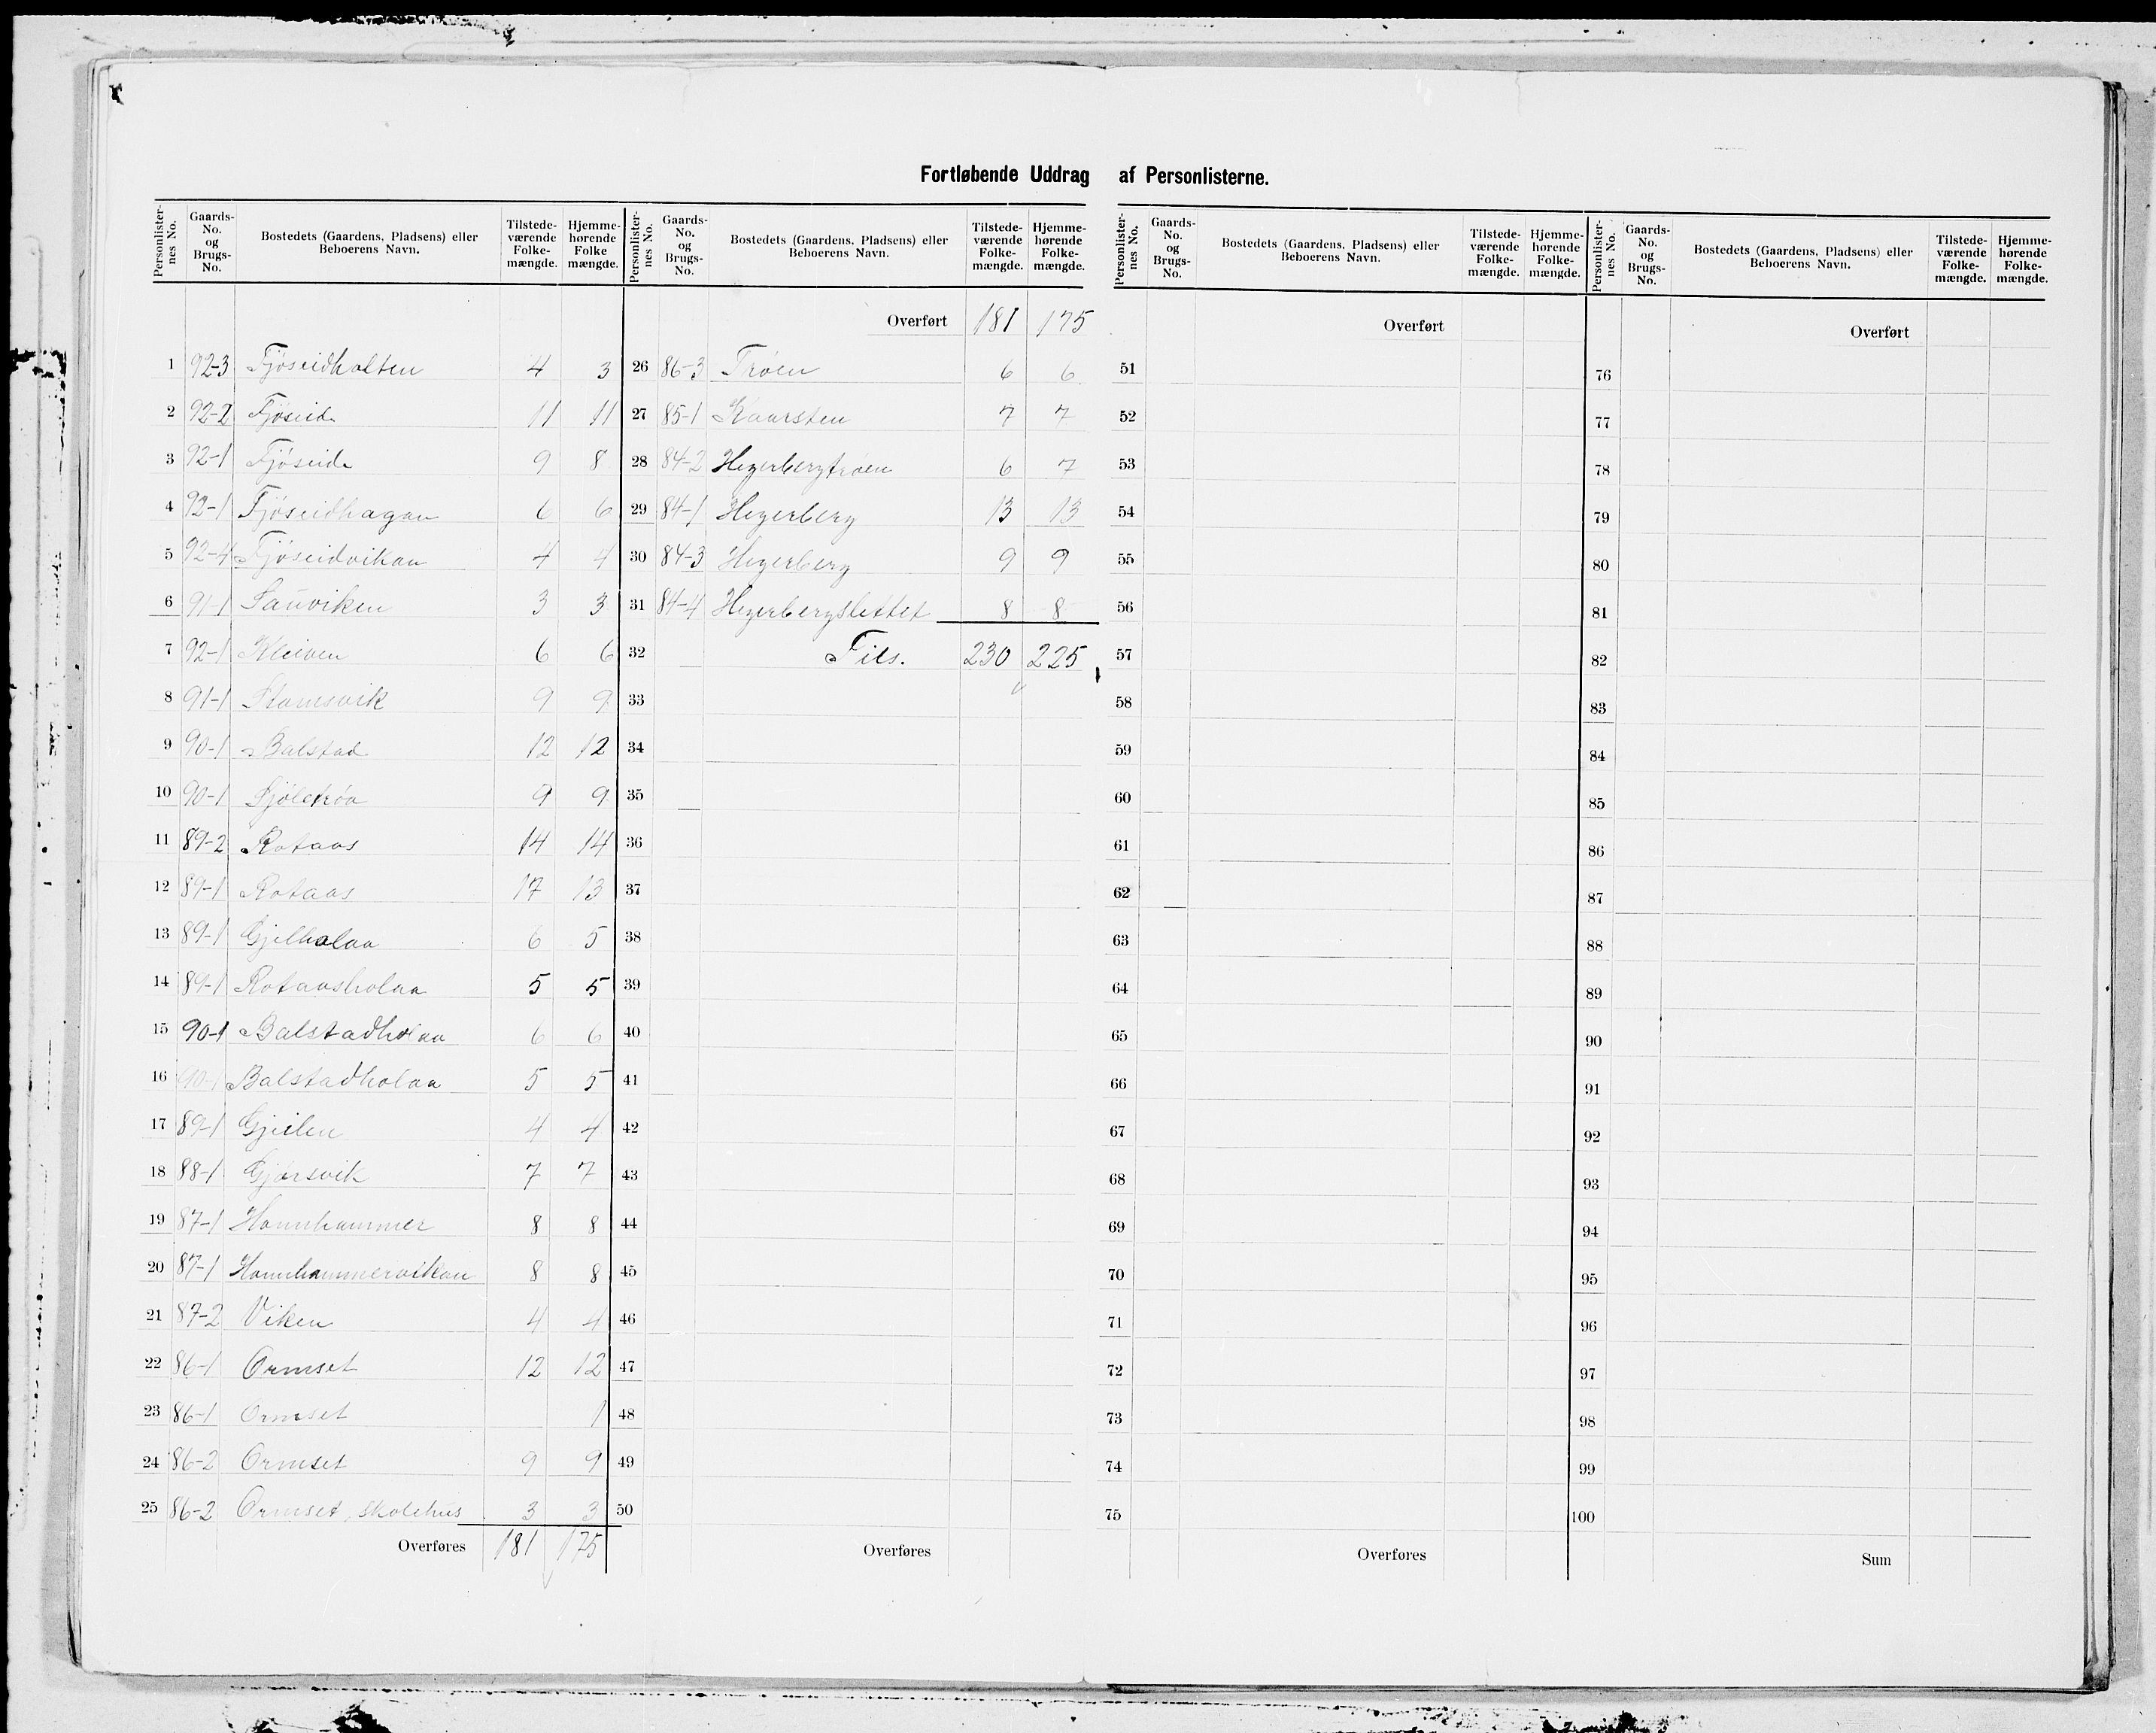 Fortløbende Uddrag af Personlisterne.
Personlister-nes No. Gaards-No. og Brugs-No. Bostedets (Gaardens, Pladsens) eller Beboerens Navn. Tilstede-værende Folke-mængde. Hjemme-hørende Folke mængde.
1 92-3 Fjöseidholten 4 3
2 92-2 Fjöseide 11 11
3 92-1 Fjöseide 9 8
4 92-1 Fjöseidhagan 6 6
5 92-4 Fjöseidvikan 4 4
6 91-1 Sauviken 3 3
7 92-1 Kleiven 6 6
8 91-1 9 9
9 90-1 Balstad 12 12
10 90-1 9 9
11 89-2 Rotaas 14 14
12 89-1 Rotaas 17 13
13 89-1 Gjelholaa 6 5
14 89-1 Rotaasholaa 5 5
15 90-1 Balstadholaa 6 6
16 90-1 Balstadholaa 5 5
17 89-1 Gjeilen 4 4
18 88-1 Gjørsvik 7 7
19 87-1 Honnhammer 8 8
20 87-1 Honnhammervikan 8 8
21 87-2 Viken 4 4
22 86-1 Ormset 12 12
23 86-1 Ormset 1
24 86-2 Ormset 9 9
25 86-2 Ormset, skolehus 3 3
Overføres 181 175
Personlister-nes No. Gaards-No. og Brugs-No. Bostedets (Gaardens, Pladsens) eller Beboerens Navn. Tilstede-værende Folke-mængde. Hjemme-hørende Folke-mængde.
Overført 181 175
26 86-3 Trøen 6 6
27 85-1 Kaarsten 7 7
28 84-2 Hegerbergtrøen 6 7
29 84-1 Hegerberg 13 13
30 84-3 Hegerberg 9 9
31 84-4 Hegerbergslettet 8 8
32 Tils. 230 225
33
34
35
36
37
38
39
40
41
42
43
44
45
46
47
48
49
50
Overføres
Personlister-nes No. Gaards-No. og Brugs-No. Bostedets (Gaardens, Pladsens) eller Beboerens Navn. Tilstede-værende Folke-mængde. Hjemme-hørende Folke-mængde.
Overført
51
52
53
54
55
56
57
58
59
60
61
62
63
64
65
66
67
68
69
70
71
72
73
74
75
Overføres
Personlister-nes No. Gaards-No. og Brugs-No. Bostedets (Gaardens, Pladsens) eller Beboerens Navn. Tilstede-værende Folke-mængde. Hjemme-hørende Folke-mængde.
Overført
76
77
78
79
80
81
82
83
84
85
86
87
88
89
90
91
92
93
94
95
96
97
98
99
100
Sum